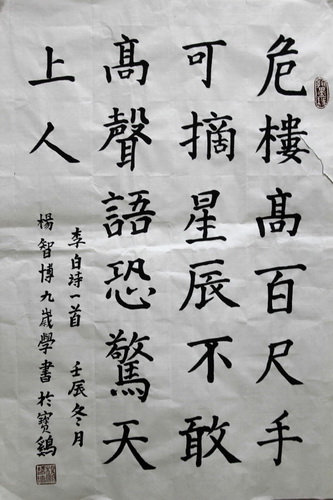 危樓高百尺手
可摘星辰不敢
高聲語恐驚天
上人
李白诗一首 壬辰冬月
楊智博九歲學書於寳鷄